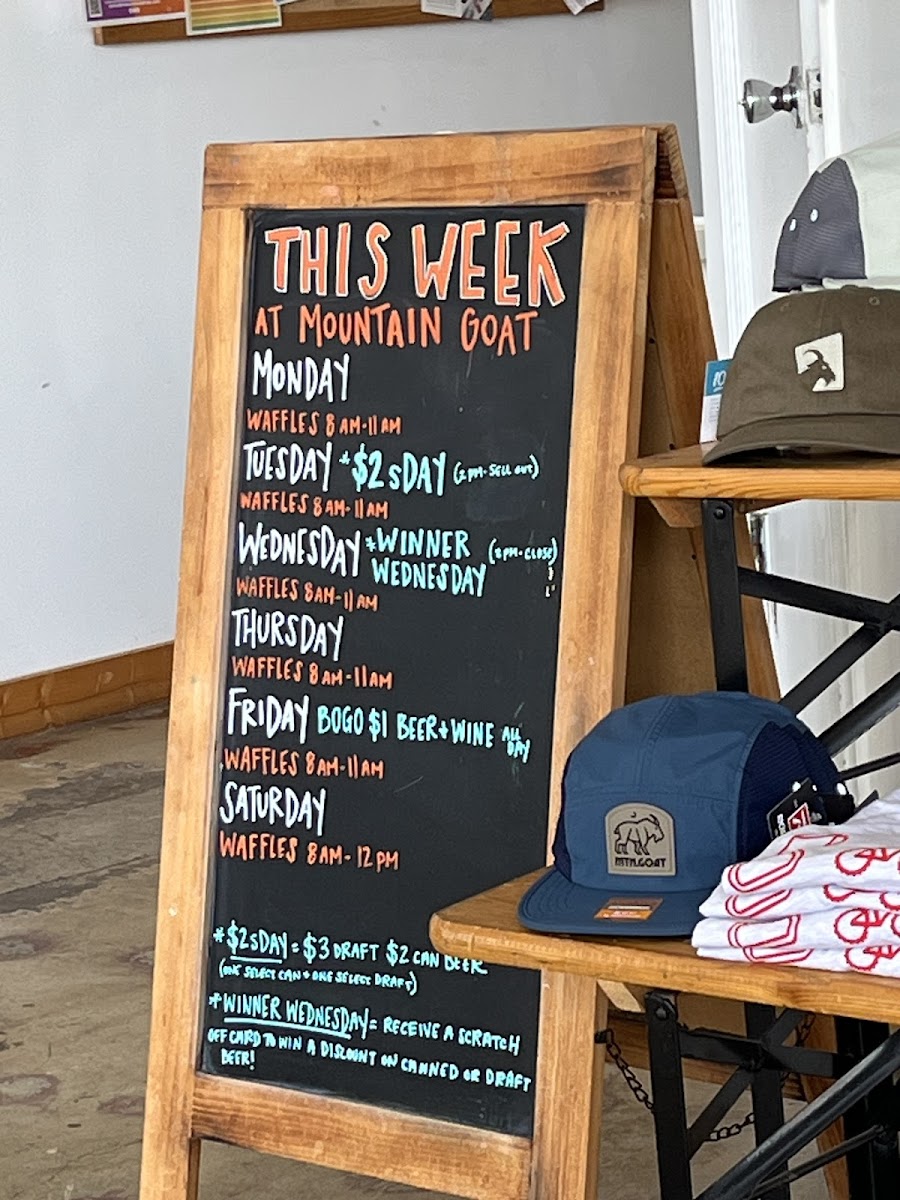 THIS WEEK
AT MOUNTAIN GOAT
MONDAY
WAFFLES 8AM-11AM
TUESDAY *$2SDAY (2PM-SELL OUT)
WAFFLES 8AM-11AM
WEDNESDAY *WINNER WEDNESDAY (2PM-CLOSE)
WAFFLES 8AM-11AM
THURSDAY
WAFFLES 8AM-11AM
FRIDAY BOGO $1 BEER+WINE ALL DAY
WAFFLES 8AM-11AM
SATURDAY
WAFFLES 8AM-12PM
*$2SDAY = $3 DRAFT $2 CAN BEER
(ONE SELECT CAN + ONE SELECT DRAFT)
*WINNER WEDNESDAY = RECEIVE A SCRATCH
OFF CARD TO WIN A DISCOUNT ON CANNED OR DRAFT
BEER!
MTN.GOAT